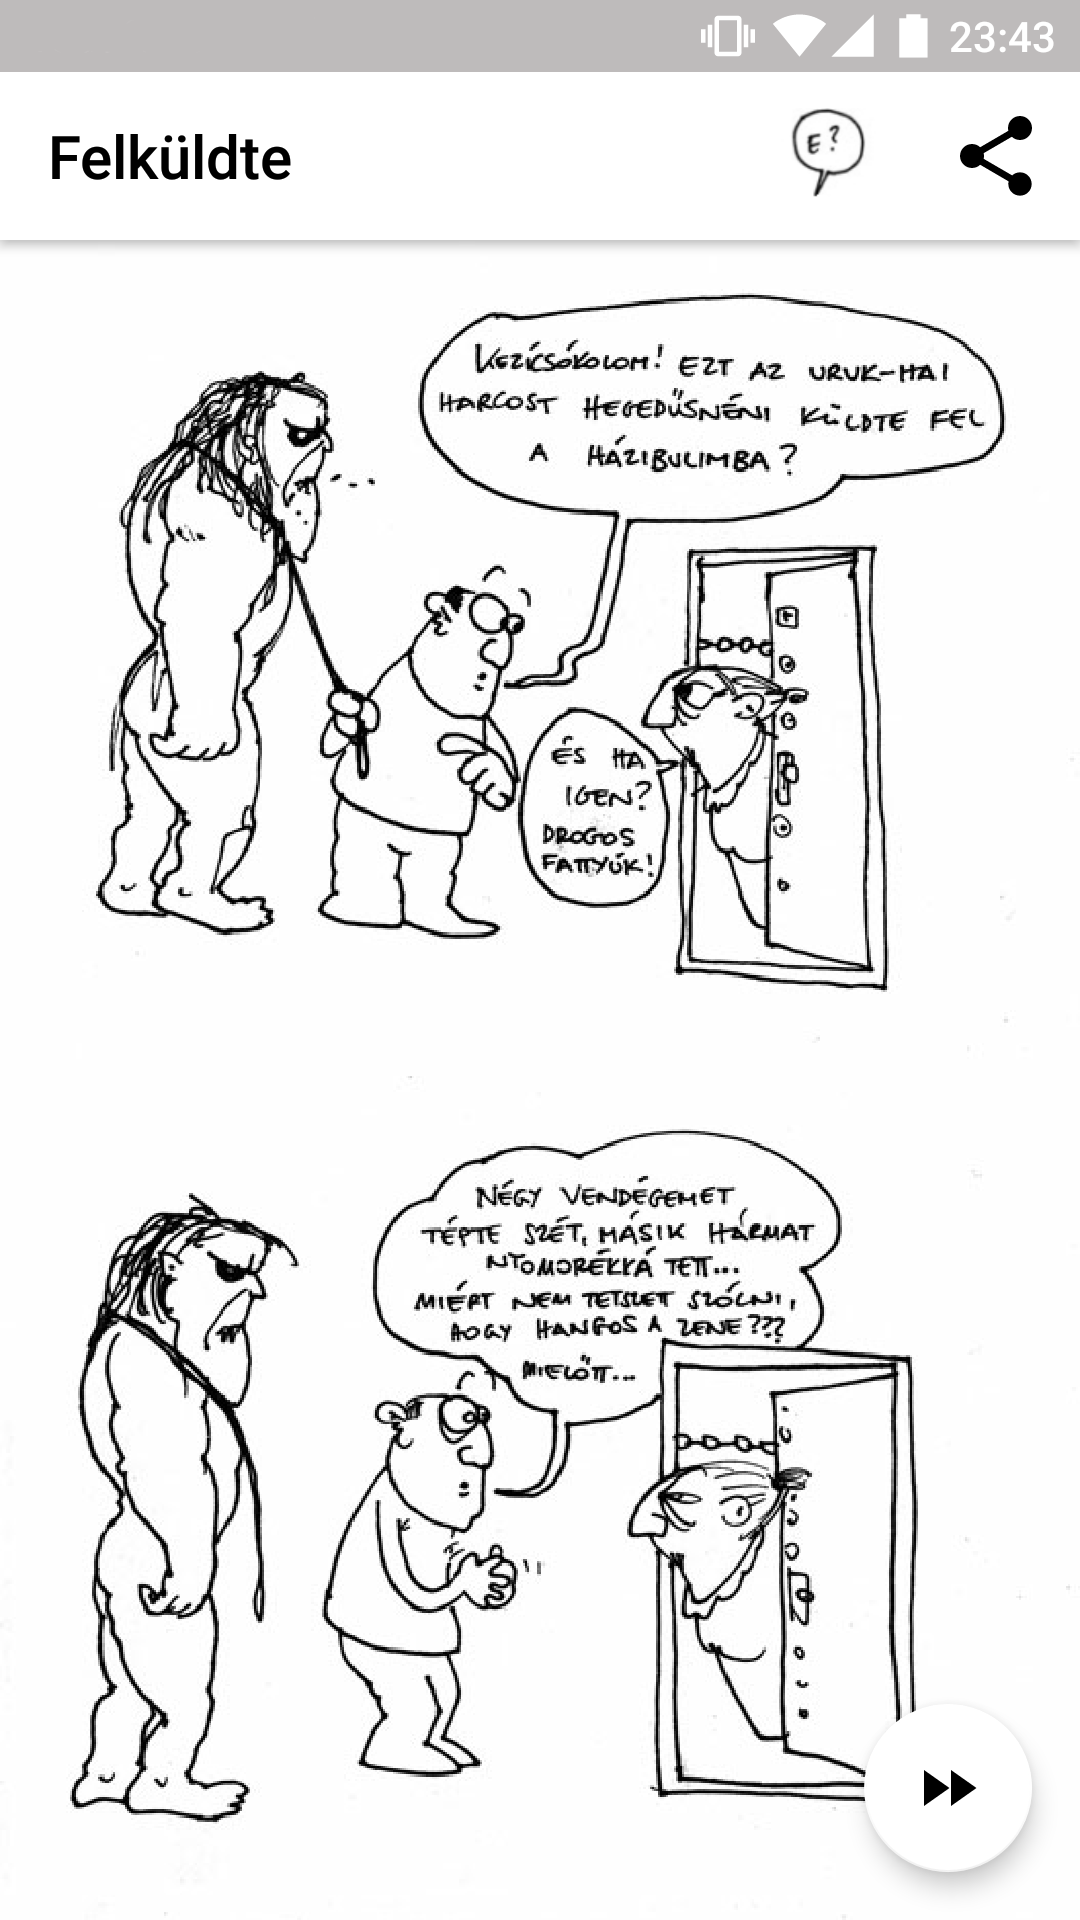 23:43
Felküldte
E?
KEZÍCSÓKOLOM! EZT AZ URUK-HAI
HARCOST HEGEDŰSNÉNI KÜLDTE FEL
A HÁZIBULIMBA?
ÉS HA
IGEN?
DROGOS
FATTYÚK!
NÉGY VENDÉGEMET
TÉPTE SZÉT, MÁSIK HÁRMAT
NYOMORÉKKÁ TETT...
MIÉRT NEM TETSZETT SZÓLNI,
HOGY HANGOS A ZENE???
MIELŐTT...